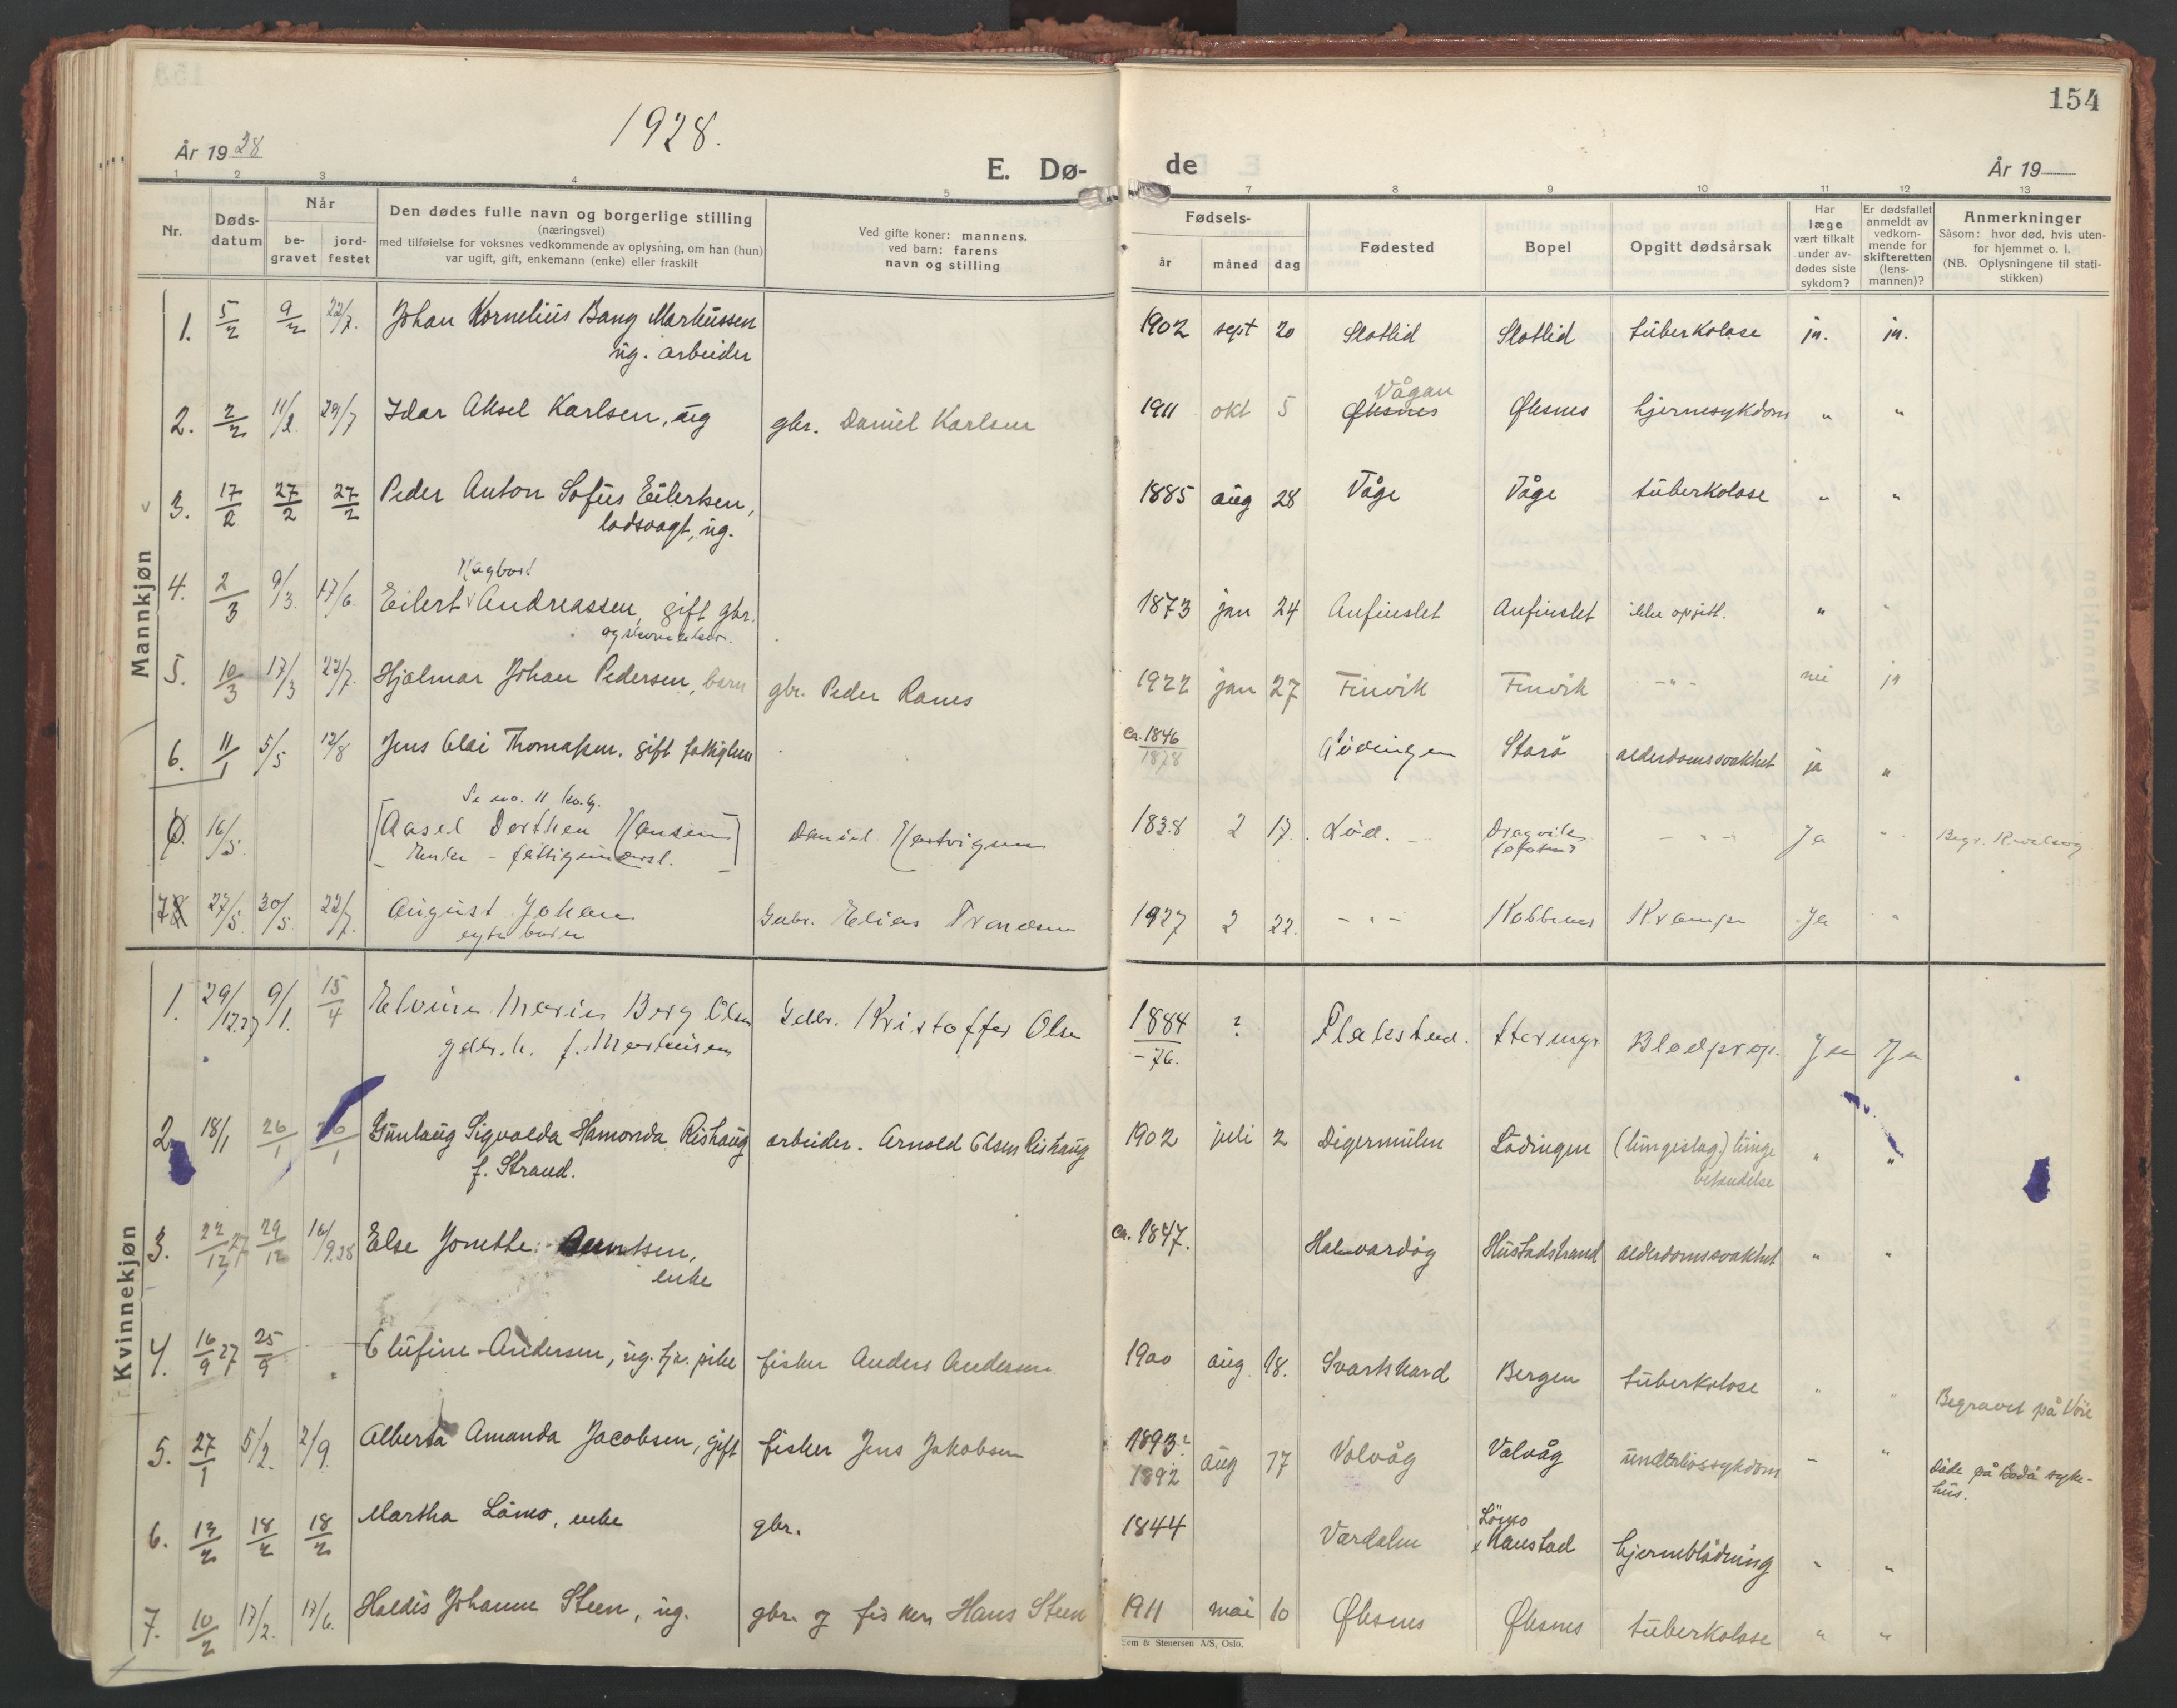 154
1928.
År 19 28
E. Dø-
de
År 19
1 2 3 4 5 7 8 9 10 11 12 13
Nr.
Døds-
datum
Når
be-
gravet
jord-
festet
Den dødes fulle navn og borgerlige stilling
(næringsvei)
med tilføielse for voksnes vedkommende av oplysning, om han (hun)
var ugift, gift, enkemann (enke) eller fraskilt
Ved gifte koner: mannens,
ved barn: farens
navn og stilling
Fødsels-
år måned dag
Fødested
Bopel
Opgitt dødsårsak
Har
læge
vært tilkalt
under av-
dødes siste
sykdom?
Er dødsfallet
anmeldt av
vedkom-
mende for
skifteretten
(lens-
mannen)?
Anmerkninger
Såsom: hvor død, hvis uten-
for hjemmet o. l.
(NB. Oplysningene til stati-
stikken)
Mannkjøn
1. 5/2 9/2 22/7. Johan Kornelius Bang Markussen 1902 sept 20 Slotlid Slotlid tuberkolose ja. ja.
ug. arbeider
Vågan
2. 2/2 11/2. 29/7 Idar Aksel Karlsen, ug gbr. Daniel Karlsen 1911 okt 5 Øksnes Øksnes hjernesykdom " "
3. 17/2 27/2 27/2 Peder Anton Sofus Eilertsen, 1885 aug 28 Våge Våge tuberkolose " "
ug.
4. 2/3 9/3. 17/6. Eilert Andreassen, gift gbr. 1873 jan 24 Anfinslet Anfinslet ikke opgitt. " "
5. 10/3 17/3 22/7. Hjalmar Johan Pedersen, barn gbr. Peder Ranes 1922 jan 27 Finvik Finvik - " - nei ja
6. 11/1 5/5 12/8 Jens Olai Thomassen, gift ca. 1846 Lödingen Storö alderdomssvakhet ja "
1878
Se no. 11 kv.kj.
16/5. [Aasel Dorthea Hansen] Daniel Hartvigsen 1838 2 17. Löd. - " - Ja "
Enke - fattigunderst.
7 27/5. 30/5. 22/7. August Johan Gbr. Elias 1927 2 22. - " - Krampe Ja "
Kvinnekjøn
1. 29/12.27 9/1. 15/4 Elvine Marie Berg Olsen Gbr. Kristoffer Olsen 1884 ? Flakstad. Blodprop. Ja Ja
f. Markussen - 76.
2. 18/1 26/1 26/1 Gunlaug Sigvalda Hamonda Rishaug arbeider. Arnold Olsen Rishaug 1902 juli 2 Digermulen Lödingen (lungeslag.) lunge " "
f. Strand. betendelse
3. 22/12 27 29/12 16/9.28 Else Jonette Berntsen, ca. 1847. Halvardöy Hustadstrand alderdomssvakhet " "
enke
4. 16/9 27 25/9 " Olufine Andersen, ug. tj. pike fisker Anders Andersen 1900 aug 18. Svartskard Bergen tuberkolose " "
Begravet på Vøie
5. 27/1 5/2. 2/9. Alberta Amanda Jacobsen, gift fisker Jens Jakobsen 1893? aug 17 Valvåg Valvåg underlivssykdom - "
1892
Døde på Bodø syke-
hus.
Lömo
6. 13/2 18/2 18/2 Martha Lömo, enke gbr. 1844 Værdalen x Kanstad hjerneblödning " "
7. 10/2 17/2. 17/6. Haldis Johanne Steen, ug. gbr. og fisker Hans Steen 1911 mai 10 Øksnes Øksnes tuberkolose " "
Sem & Stenersen A/S, Oslo.